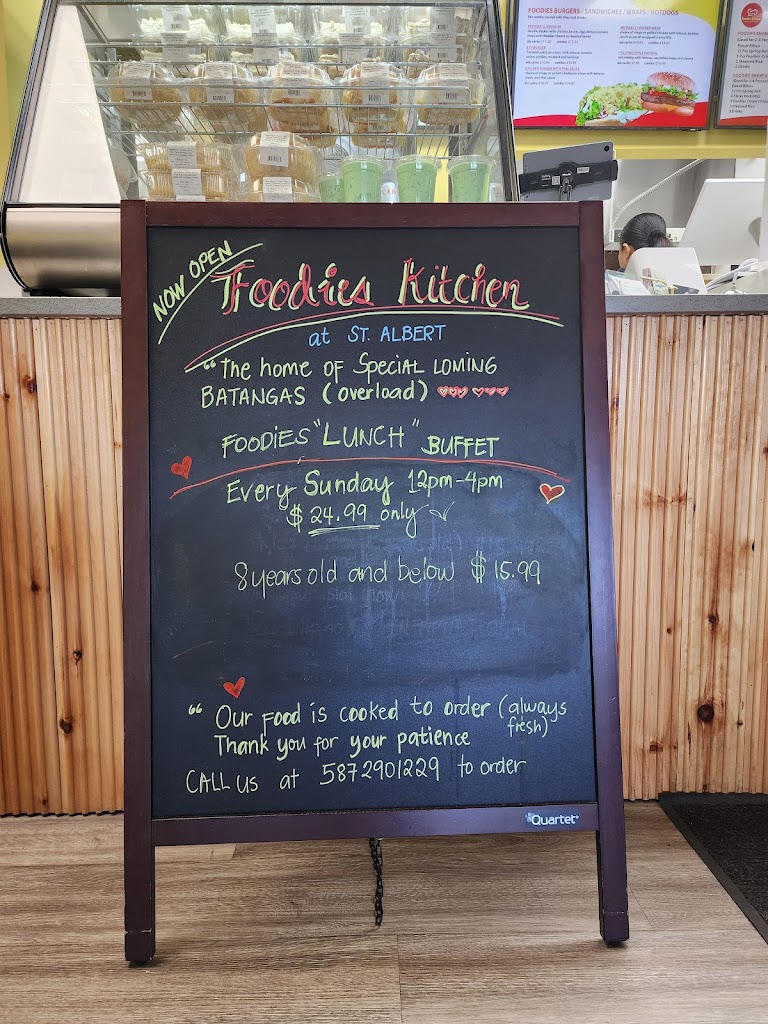 FOODIES BURGERS / SANDWICHES / WRAPS / HOTDOGS
NOW OPEN
Foodies Kitchen
at ST. ALBERT
"The home of Special LOMING
BATANGAS (overload)
FOODIES "LUNCH" BUFFET
Every Sunday 12pm-4pm
$ 24.99 only
8 years old and below $ 15.99
" Our Food is cooked to order (always
fresh)
Thank you for your patience
CALL us at 5872901229 to order
Quartet